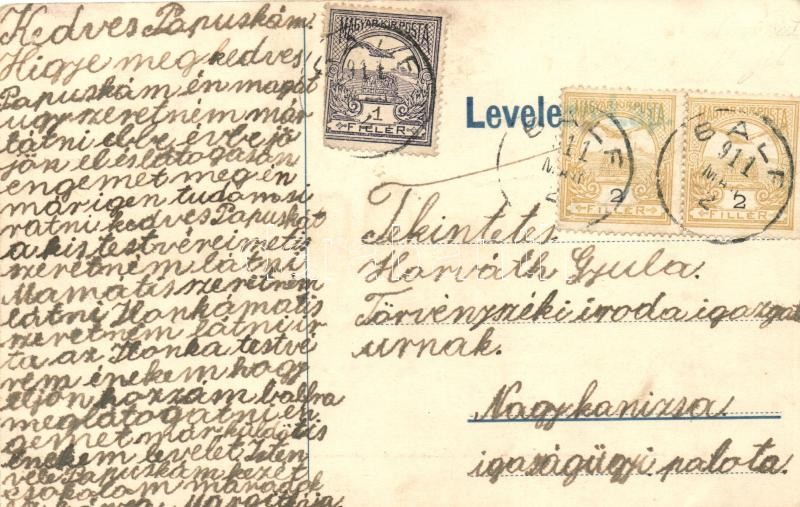 Kedves Papuskám
Higye meg kedves
Papuskám én magát
ugy szeretném már
látni elve évbe jö
jön el és látogasson
engemet meg én
már igen tudom si
ratni kedves Papuskát
a kis testvéreimet is
szeretném látni
Mamát is szeretném
látni Ilonkámat is
szeretném látni ir
ta az Ilonka testvé
rem énekem hogy
eljön hozzám balfra
meglátogatni en
gemet már küldött is
énekem levelet Isten
vele Papuskám kezét
csokolom maradok
Margitja
MAGYAR KIR. POSTA
1
FILLÉR
Levele
MAGYAR KIR. POSTA
2
FILLÉR
MAGYAR KIR. POSTA
2
FILLÉR
BALF
911
MAR
2
BALF
911
MAR
2
Tekintetes
Horváth Gyula
Törvényszéki iroda igazgat
urnak.
Nagykanizsa.
igaságügyi palota.